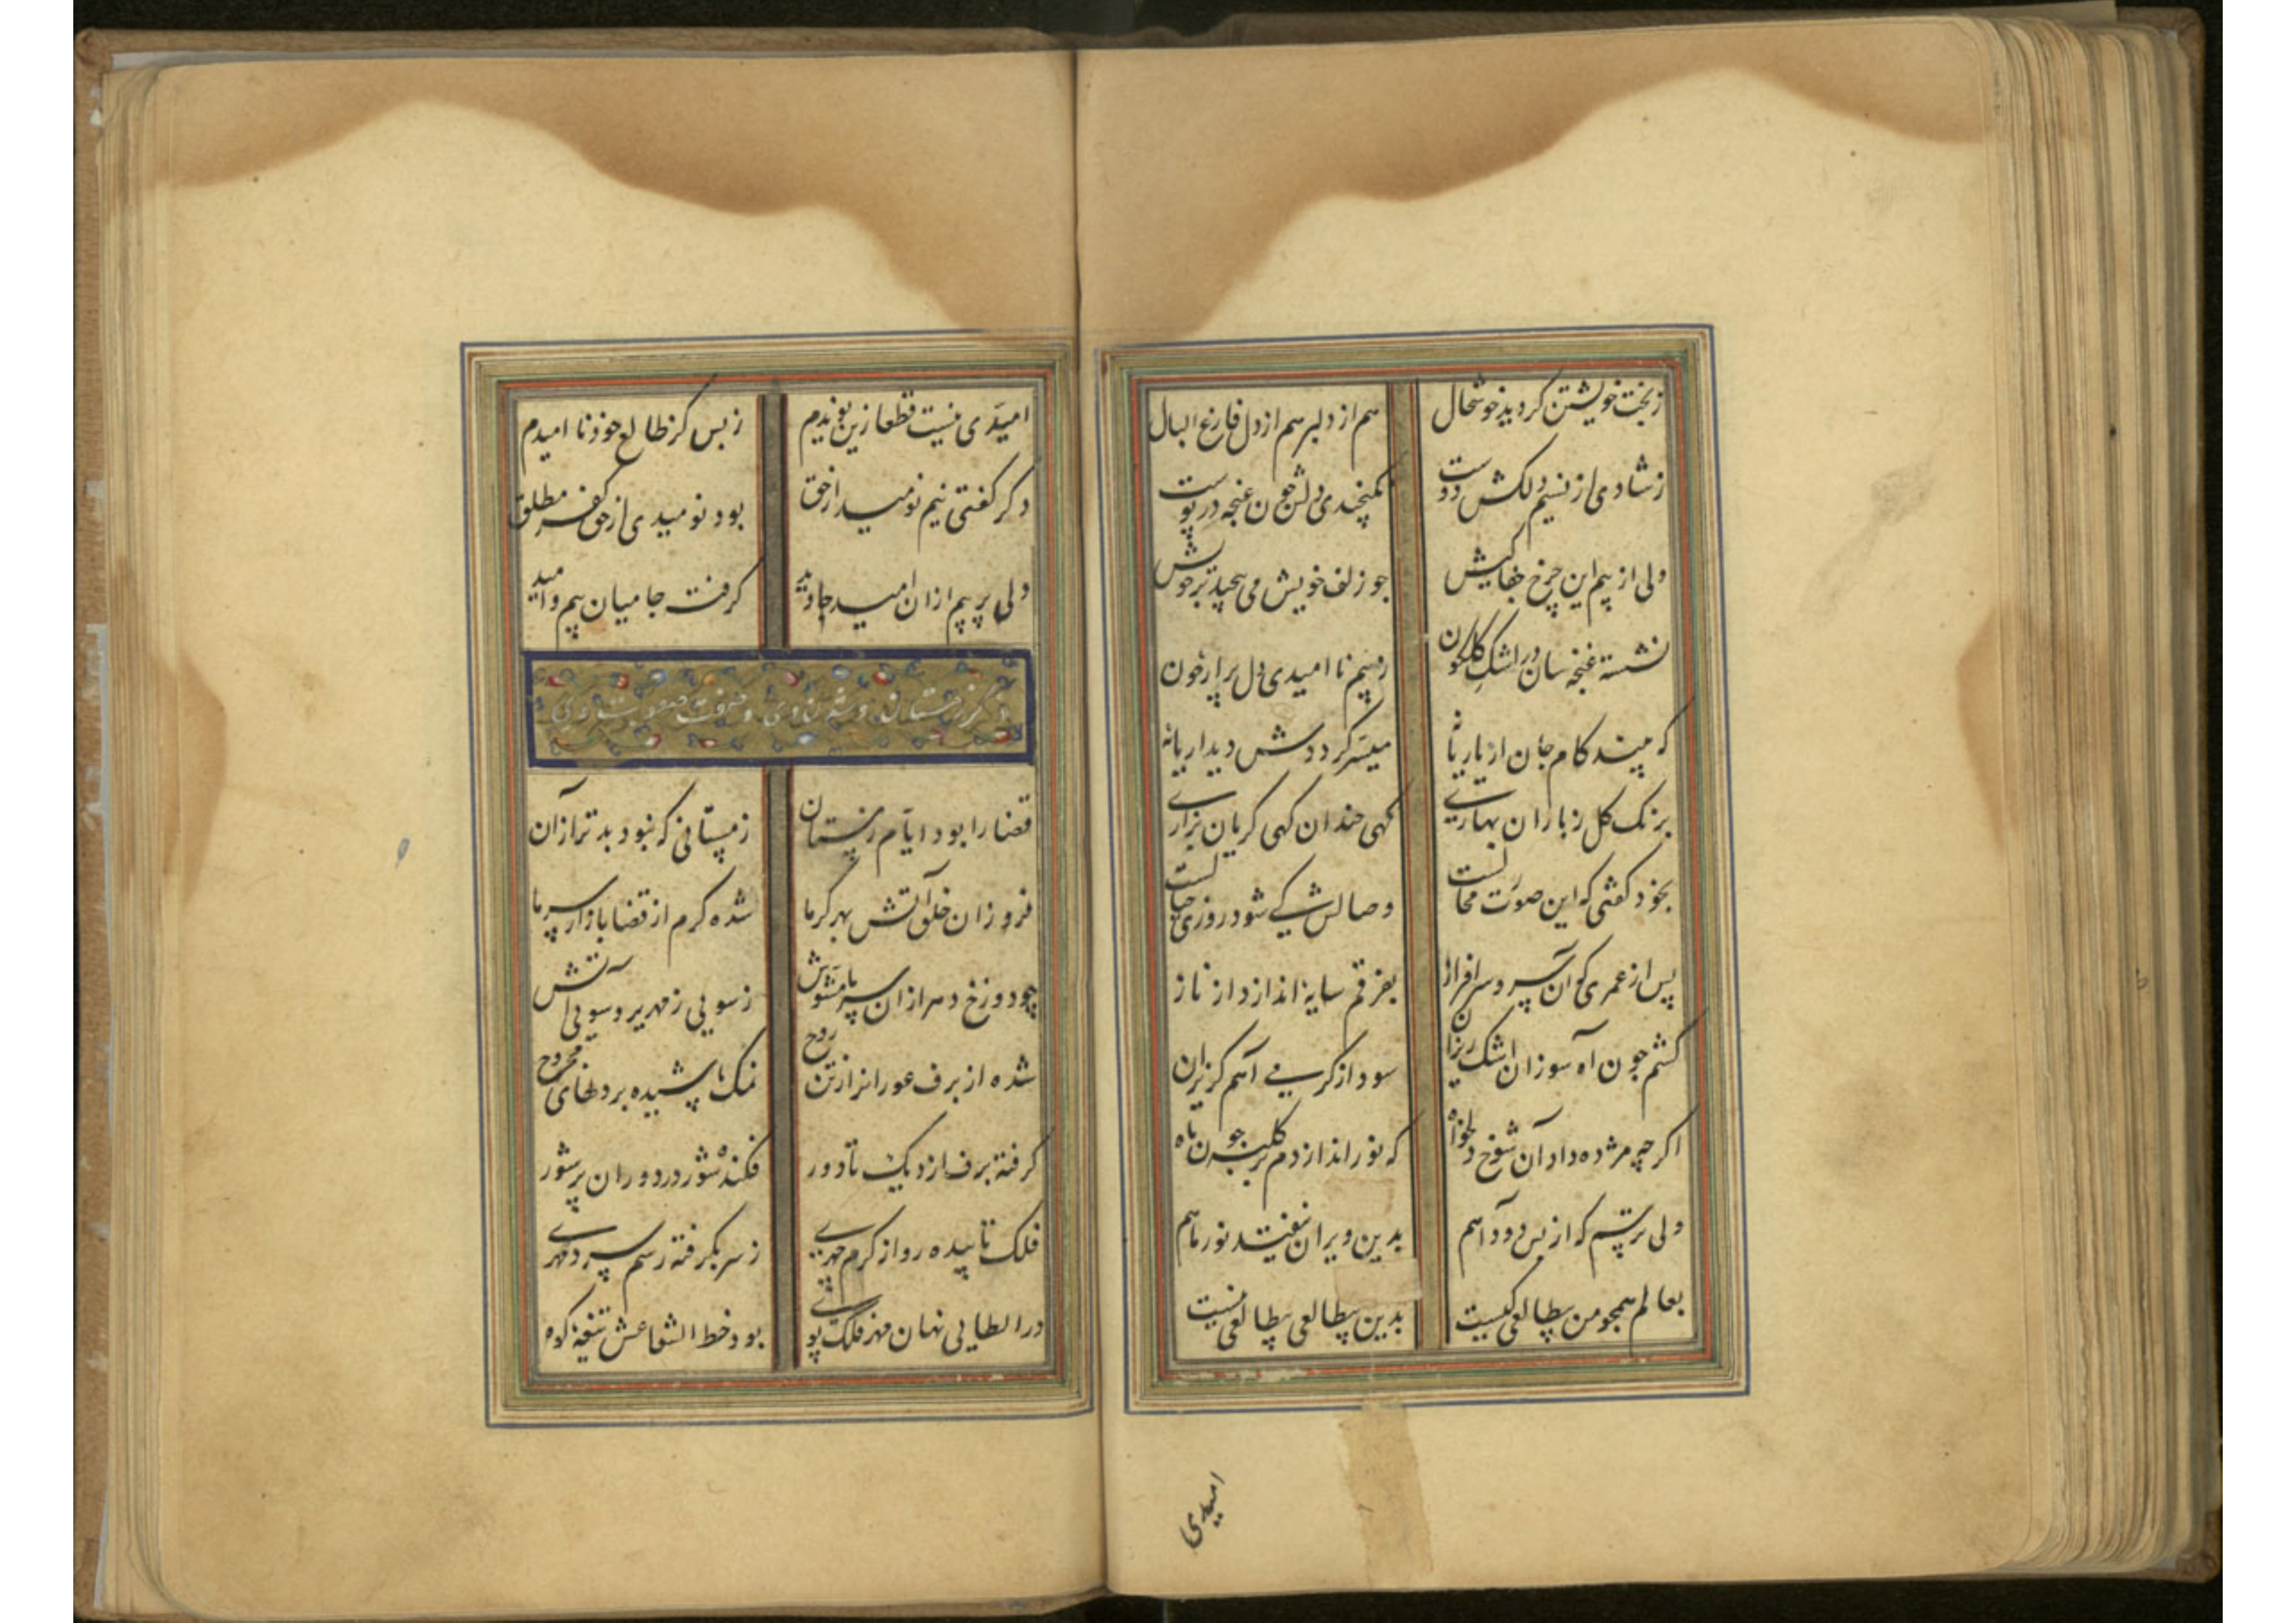 زبخت خویشتن کردید خوشحال هم از دلبر هم از دل فارغ البال
زشادی از نسیم دلکش دوست نمیکنجیدی دلش چون غنجه در پوست
ولی از بیم این چرخ جفاکیش جو زلف خویش می پیچید برخویش
نشسته غنجه سان در اشک کلکون زبیم ناامیدی دل پر از خون
که بیند کام جان از یار یا نه میسر کرددش دیدار یا نه
برنک کل زباران بهاری کهی خندان کهی کریان بزاری
بخود کفتی که این صورت محالست وصالش کی شود روزی خیالست
پس از عمری کر آن سرو سرافراز بفرقم سایه اندازد از ناز
کشم جون آه سوزان اشک ریزان سود از کرمی آهم کریزان
اکر چه مژده داد آن شوخ دلخواه که نور اندازدم بر کلبه جون ماه
ولی ترسم که از بس دود آهم بدین ویران نیفتد نور ماهم
بعالم همجو من بیطالعی کیست بدین بیطالعی بیطالعی نیست
امیدی
امیدی نیست قطعا زین نویدم زبس کز طالع خود ناامیدم
دکر کفتی نیم نومید از حق بود نومیدی از حق کفر مطلق
ولی پر بیم ازان امید جاوید کرفت جا میان بیم و امید
قضا را بود ایام زمستان زمستانی که نبود بدتر ازان
فروزان خلق آتش بهر کرما شده کرم از قضا بازار سرما
چو دوزخ دهر ازان سرما مشوش زسویی زمهریر و سویی آتش
شده از برف عوران را زتن روح نمک پاشیده بر دلهای مجروح
کرفته برف از نزدیک تا دور فکنده شور در دوران پر شور
فلک تابیده رو از کرم مهری زسر بکرفته رسم سرد مهری
در ابطایی نهان مهر فلک پوی بود خط الشعاعش تیغه کوه